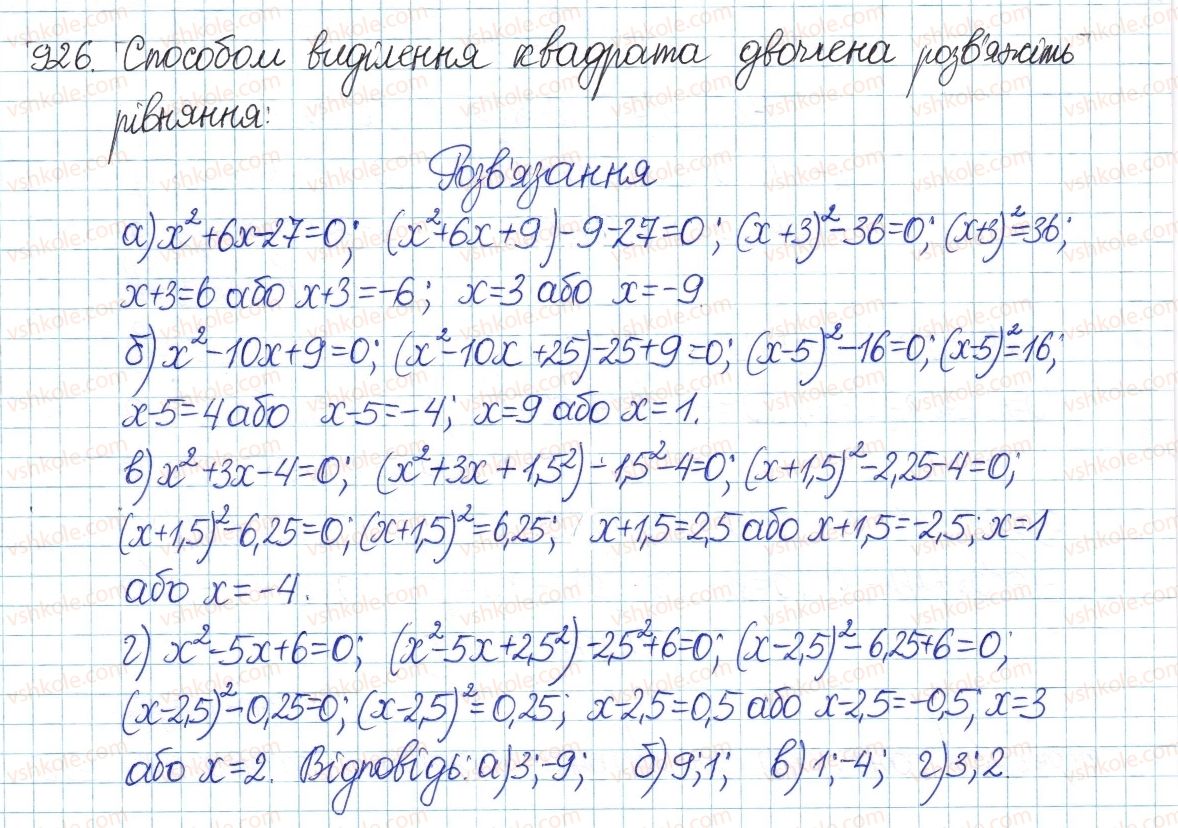 926. Способом виділення квадрата двочлена розв'яжіть
рівняння:
Розв'язання
а) x²+6x-27=0; (x²+6x+9)-9-27=0; (x+3)²-36=0; (x+3)²=36;
x+3=6 або x+3=-6; x=3 або x=-9.
б) x²-10x+9=0; (x²-10x+25)-25+9=0; (x-5)²-16=0; (x-5)²=16;
x-5=4 або x-5=-4; x=9 або x=1.
в) x²+3x-4=0; (x²+3x+1,5²)-1,5²-4=0; (x+1,5)²-2,25-4=0;
(x+1,5)²-6,25=0; (x+1,5)²=6,25; x+1,5=2,5 або x+1,5=-2,5; x=1
або x=-4.
г) x²-5x+6=0; (x²-5x+2,5²)-2,5²+6=0; (x-2,5)²-6,25+6=0;
(x-2,5)²-0,25=0; (x-2,5)²=0,25; x-2,5=0,5 або x-2,5=-0,5; x=3
або x=2. Відповідь: а) 3; -9; б) 9; 1; в) 1; -4; г) 3; 2.